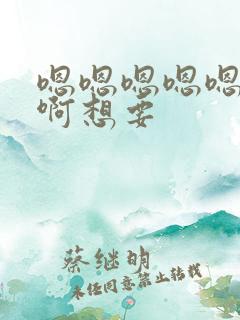 嗯嗯嗯嗯嗯
啊想要
蔡继明
未经同意禁止转载